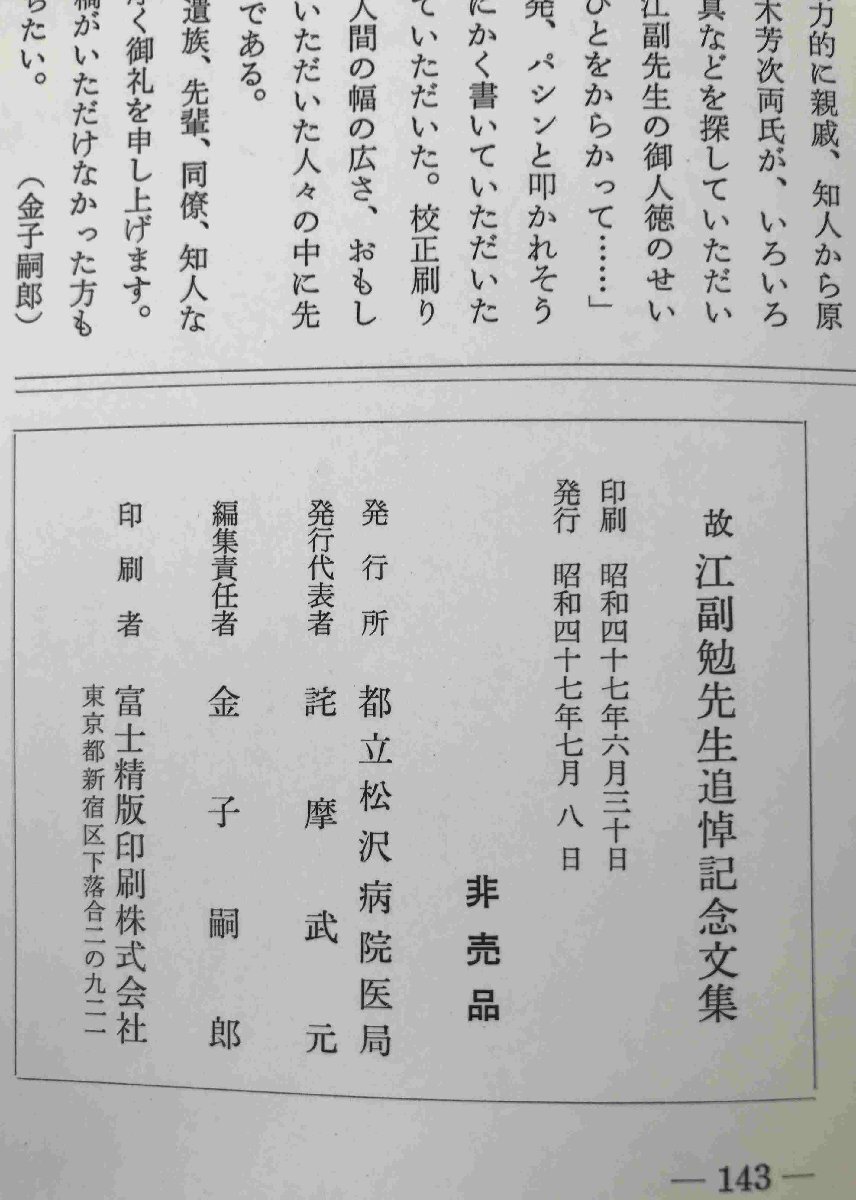 力的に親戚、知人から原
木芳次両氏が、いろいろ
真などを探していただい
江副先生の御人徳のせい
ひとをからかって……」
発、パシンと叩かれそう
にかく書いていただいた
ていただいた。校正刷り
人間の幅の広さ、おもし
いただいた人々の中に先
である。
遺族、先輩、同僚、知人な
く御礼を申し上げます。
稿がいただけなかった方も
たい。
（金子嗣郎）
故江副勉先生追悼記念文集
印刷 昭和四十七年六月三十日
発行 昭和四十七年七月八日
非売品
発行所 都立松沢病院医局
発行代表者 詫摩武元
編集責任者 金子嗣郎
印刷者 富士精版印刷株式会社
東京都新宿区下落合二の九二一
— 143 —